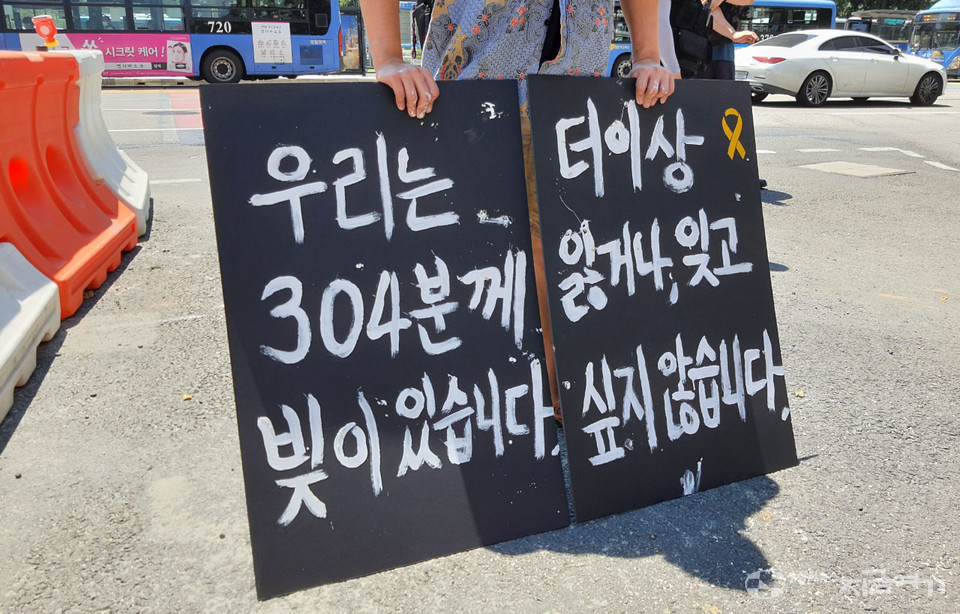 720
시크릿 케어!
우리는
304분께
빚이 있습니다.
더이상
잃거나, 잊고
싶지않습니다.
지금여기